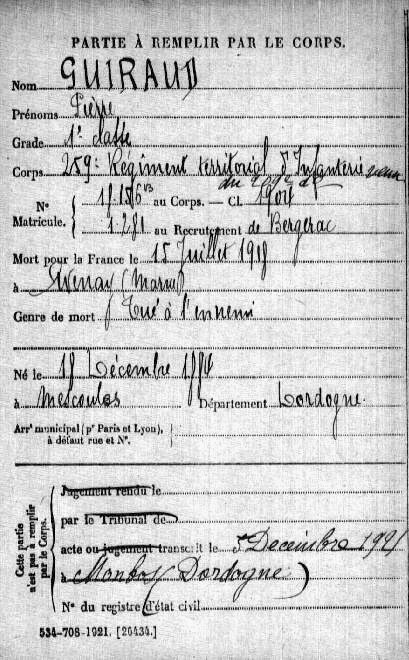 PARTIE À REMPLIR PAR LE CORPS.
Nom GUIRAUD
Prénoms Pierre
Grade 1re classe
Corps 259e Régiment territorial d'Infanterie venu
du
N° Matricule. { 18.156 bis au Corps. — Cl. 1904
1.281 au Recrutement de Bergerac
Mort pour la France le 15 Juillet 1918
à Avenay (Marne)
Genre de mort Tué à l'ennemi
Né le 18 Décembre 1884
à Mescoules Département Dordogne
Arrt municipal (pr Paris et Lyon), à défaut rue et N°.
Cette partie n'est pas à remplir par le Corps.
Jugement rendu le
par le Tribunal de
acte ou jugement transcrit le 5 Decembre 1921
à Monbos (Dordogne)
N° du registre d'état civil
534-708-1921. [26434.]